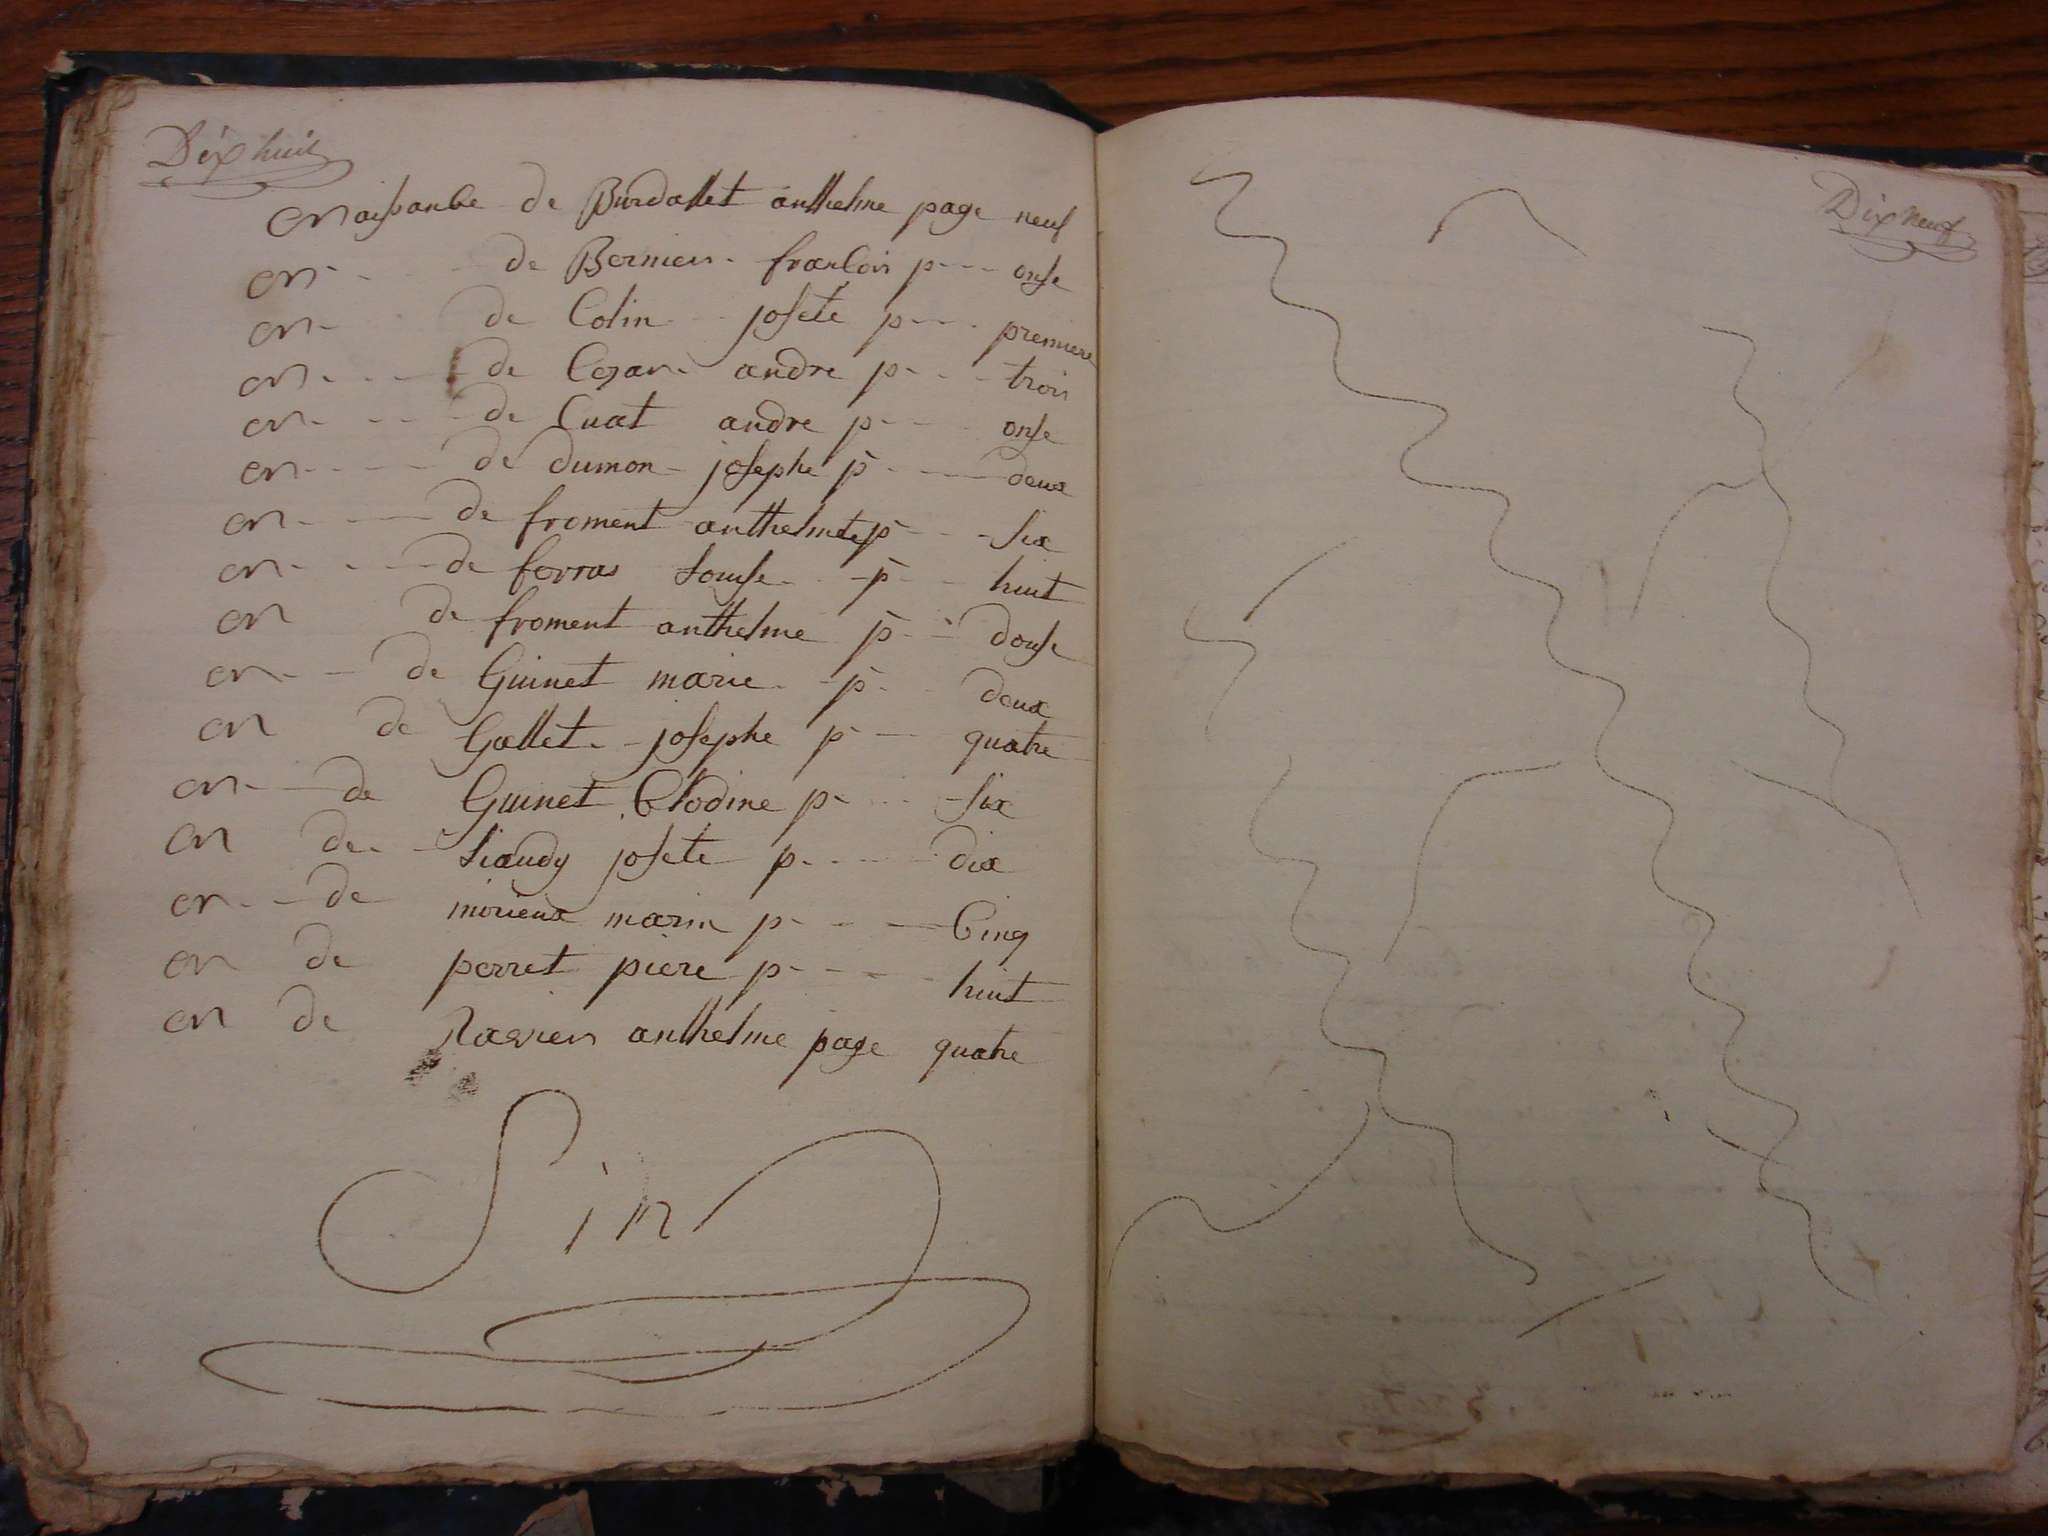 Dix huit
Naissance de Burdallet anthelme page neuf
N - - - de Bernier françois p - - - onse
N - - de Colin josete p - - - premiere
N - - - de Cezar andre p - - - trois
N - - - de Cuat andre p - - - onse
N - - - de dumon josephe p - - - deux
N - - - de froment anthelmete p - - - six
N - - - de ferras Louise p - - - huit
N de froment anthelme p - - - douse
N - - de Guinet marie p - - - deux
N de Gallet josephe p - - - quatre
N - - de Guinet Clodine p - - - six
N de Siaudy josete p - - - dix
N - - de morieux marin p - - - Cinq
N de perret piere p - - - huit
N de Ravier anthelme page quatre
Fin
Dix neuf